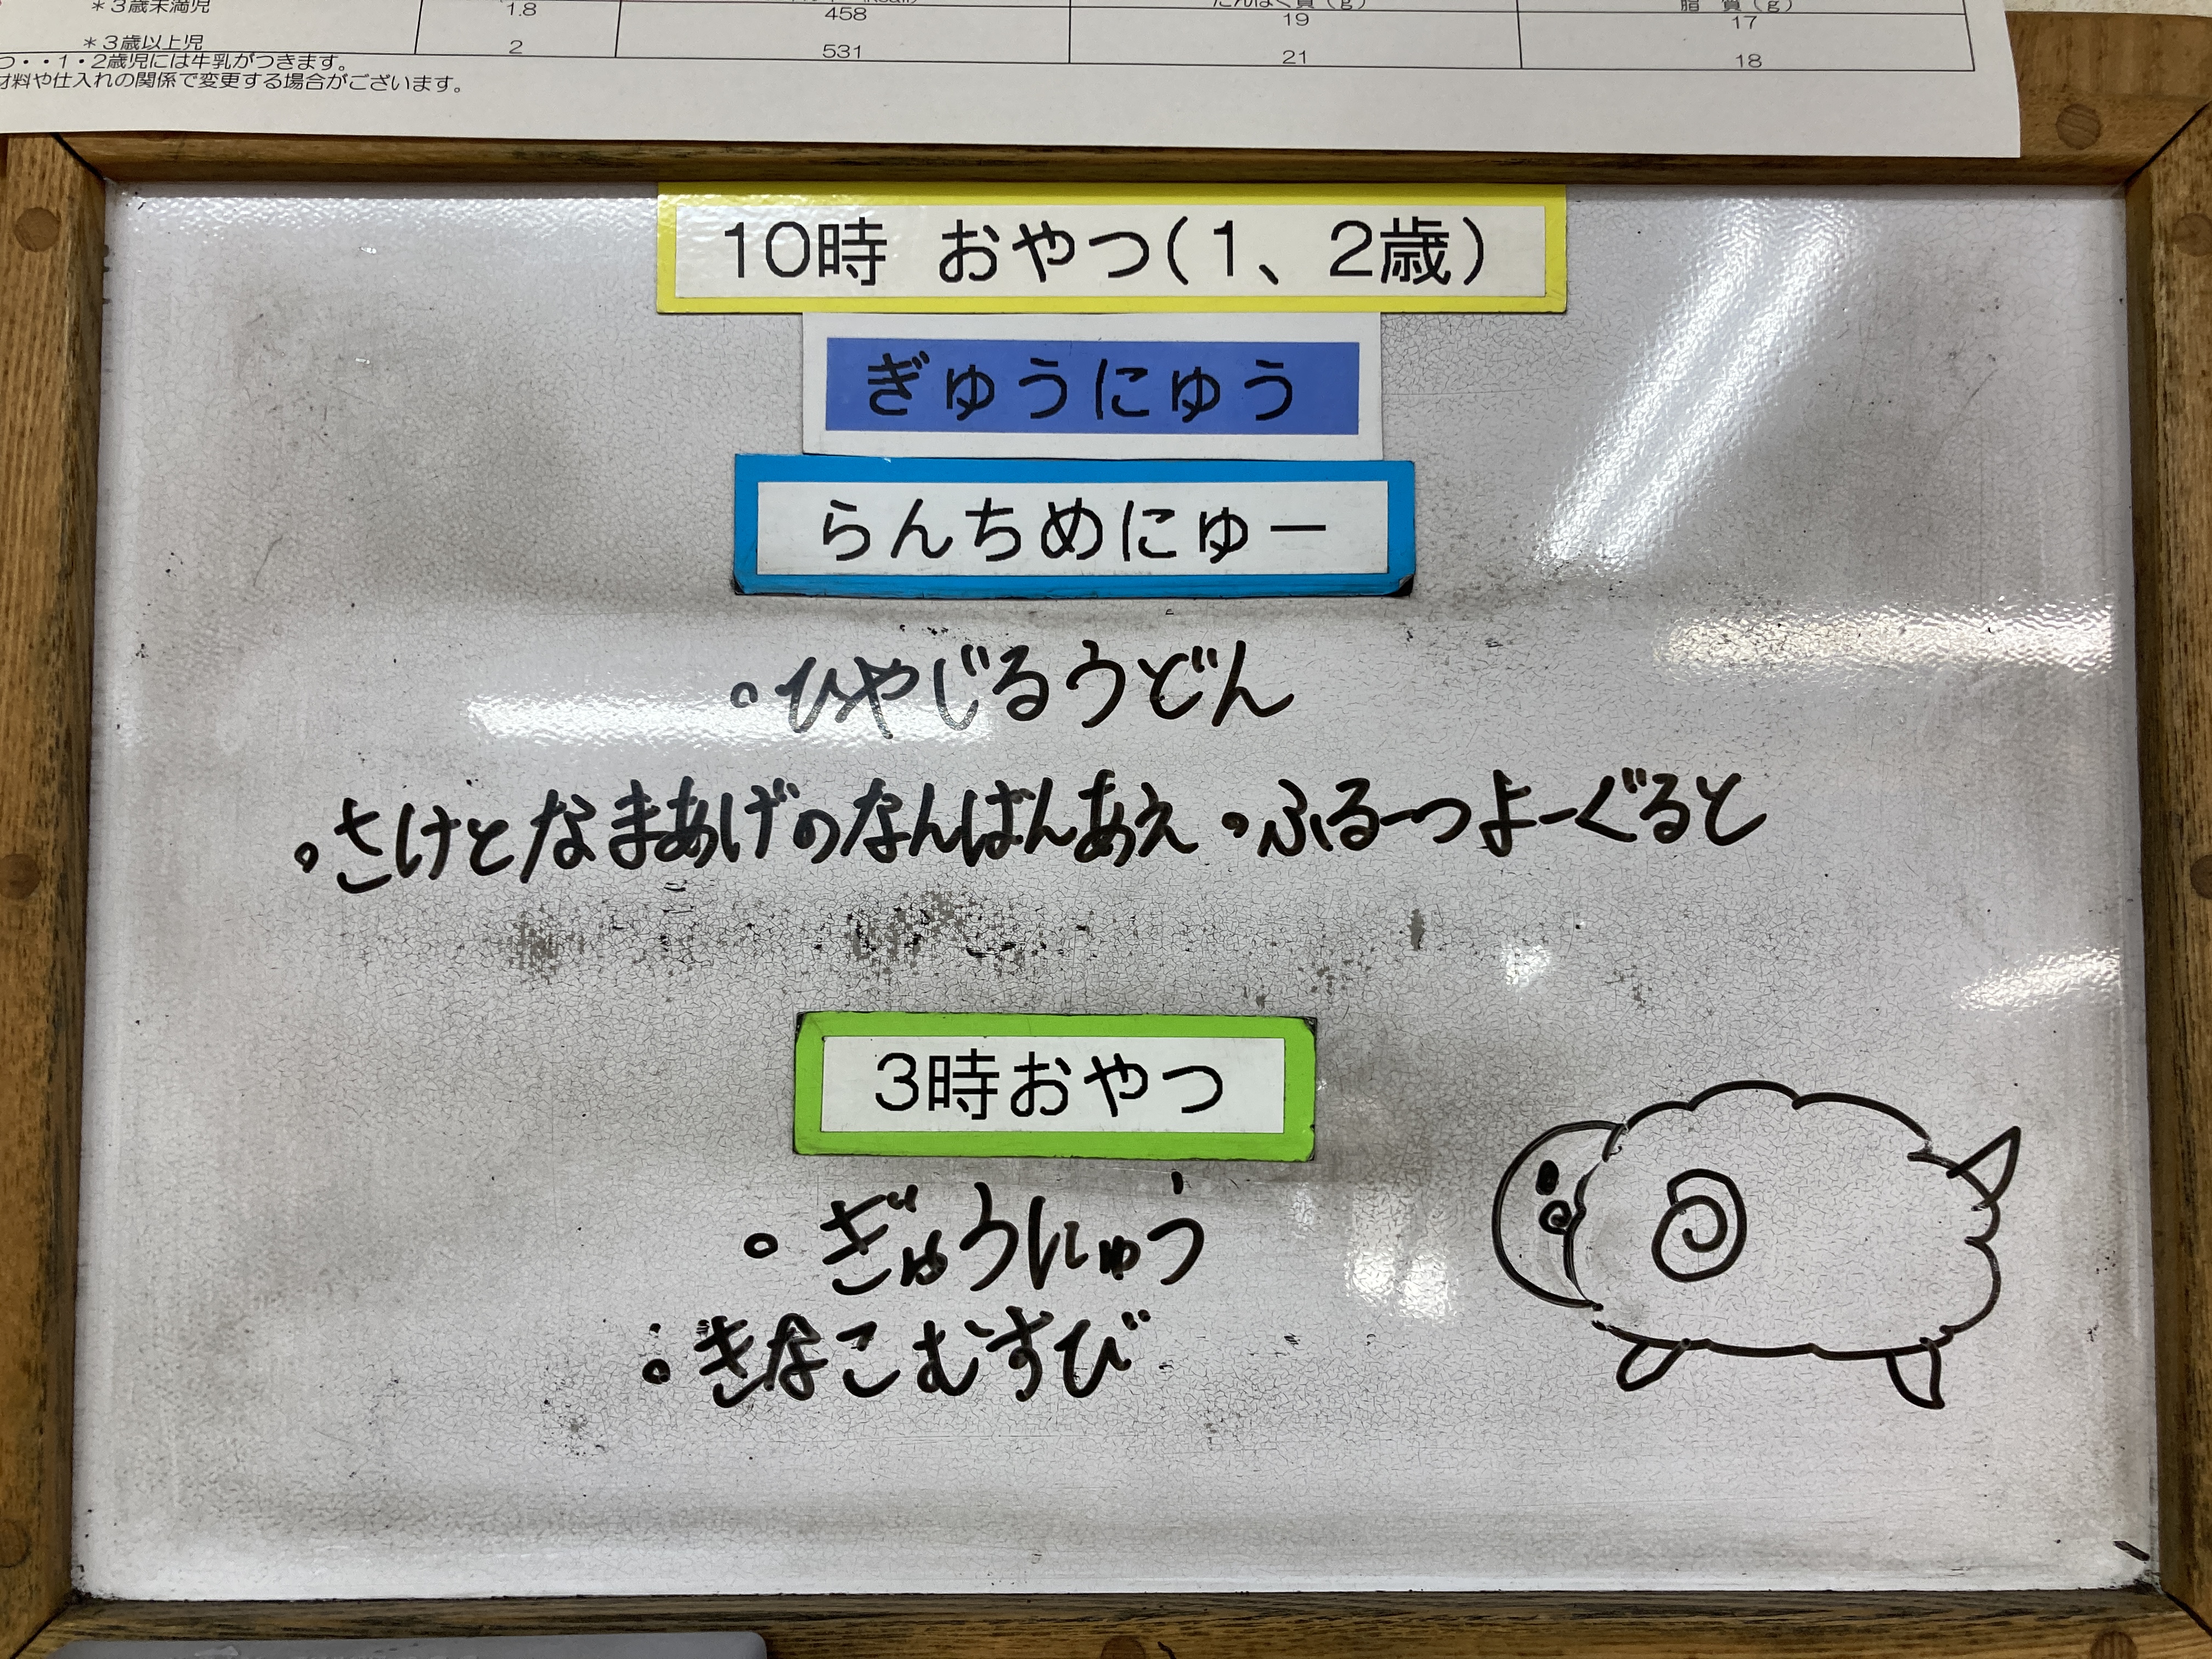 ＊3歳未満児 1.8 458 19 17
脂 質（g）
＊3歳以上児 2 531 21 18
つ・・1・2歳児には牛乳がつきます。
材料や仕入れの関係で変更する場合がございます。
10時 おやつ（1、2歳）
ぎゅうにゅう
らんちめにゅー
。ひやじるうどん
。さけとなまあげのなんばんあえ 。ふるーつよーぐると
3時おやつ
。ぎゅうにゅう
。きなこむすび